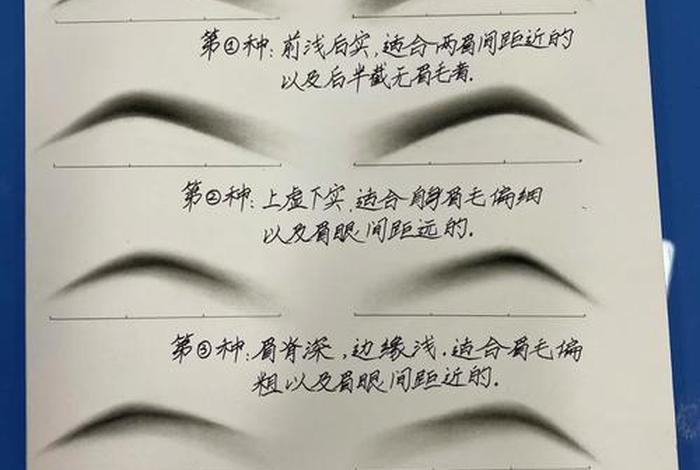 第①种：前浅后实，适合两眉间距近的
以及后半截无眉毛者.
第②种：上虚下实，适合自身眉毛偏细
以及眉眼间距远的.
第③种：眉脊深，边缘浅.适合眉毛偏
粗以及眉眼间距近的.